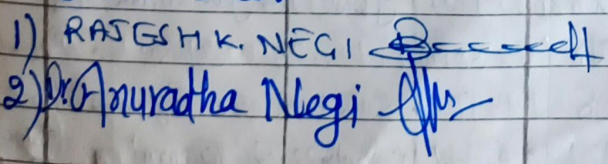 1) RAJESH K. NEGI
2) Dr. Anuradha Negi